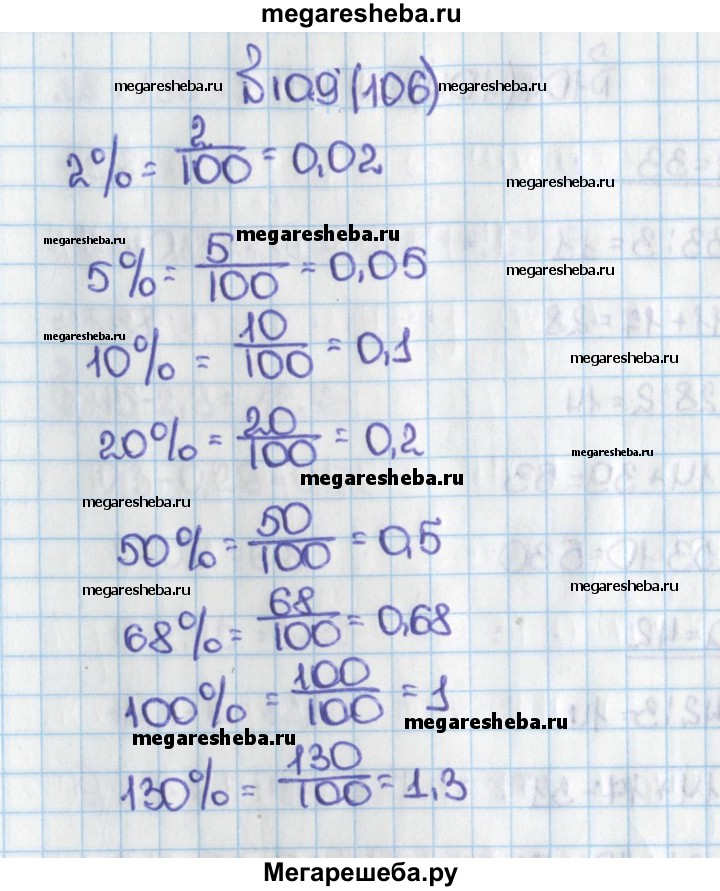 megaresheba.ru
№109 (106)
megaresheba.ru megaresheba.ru
2% = 2/100 = 0,02
megaresheba.ru
megaresheba.ru megaresheba.ru
5% = 5/100 = 0,05
megaresheba.ru
megaresheba.ru
10% = 10/100 = 0,1
megaresheba.ru
20% = 20/100 = 0,2
megaresheba.ru
megaresheba.ru
megaresheba.ru
50% = 50/100 = 0,5
megaresheba.ru megaresheba.ru
68% = 68/100 = 0,68
100% = 100/100 = 1
megaresheba.ru
megaresheba.ru
130% = 130/100 = 1,3
Мегарешеба.ру